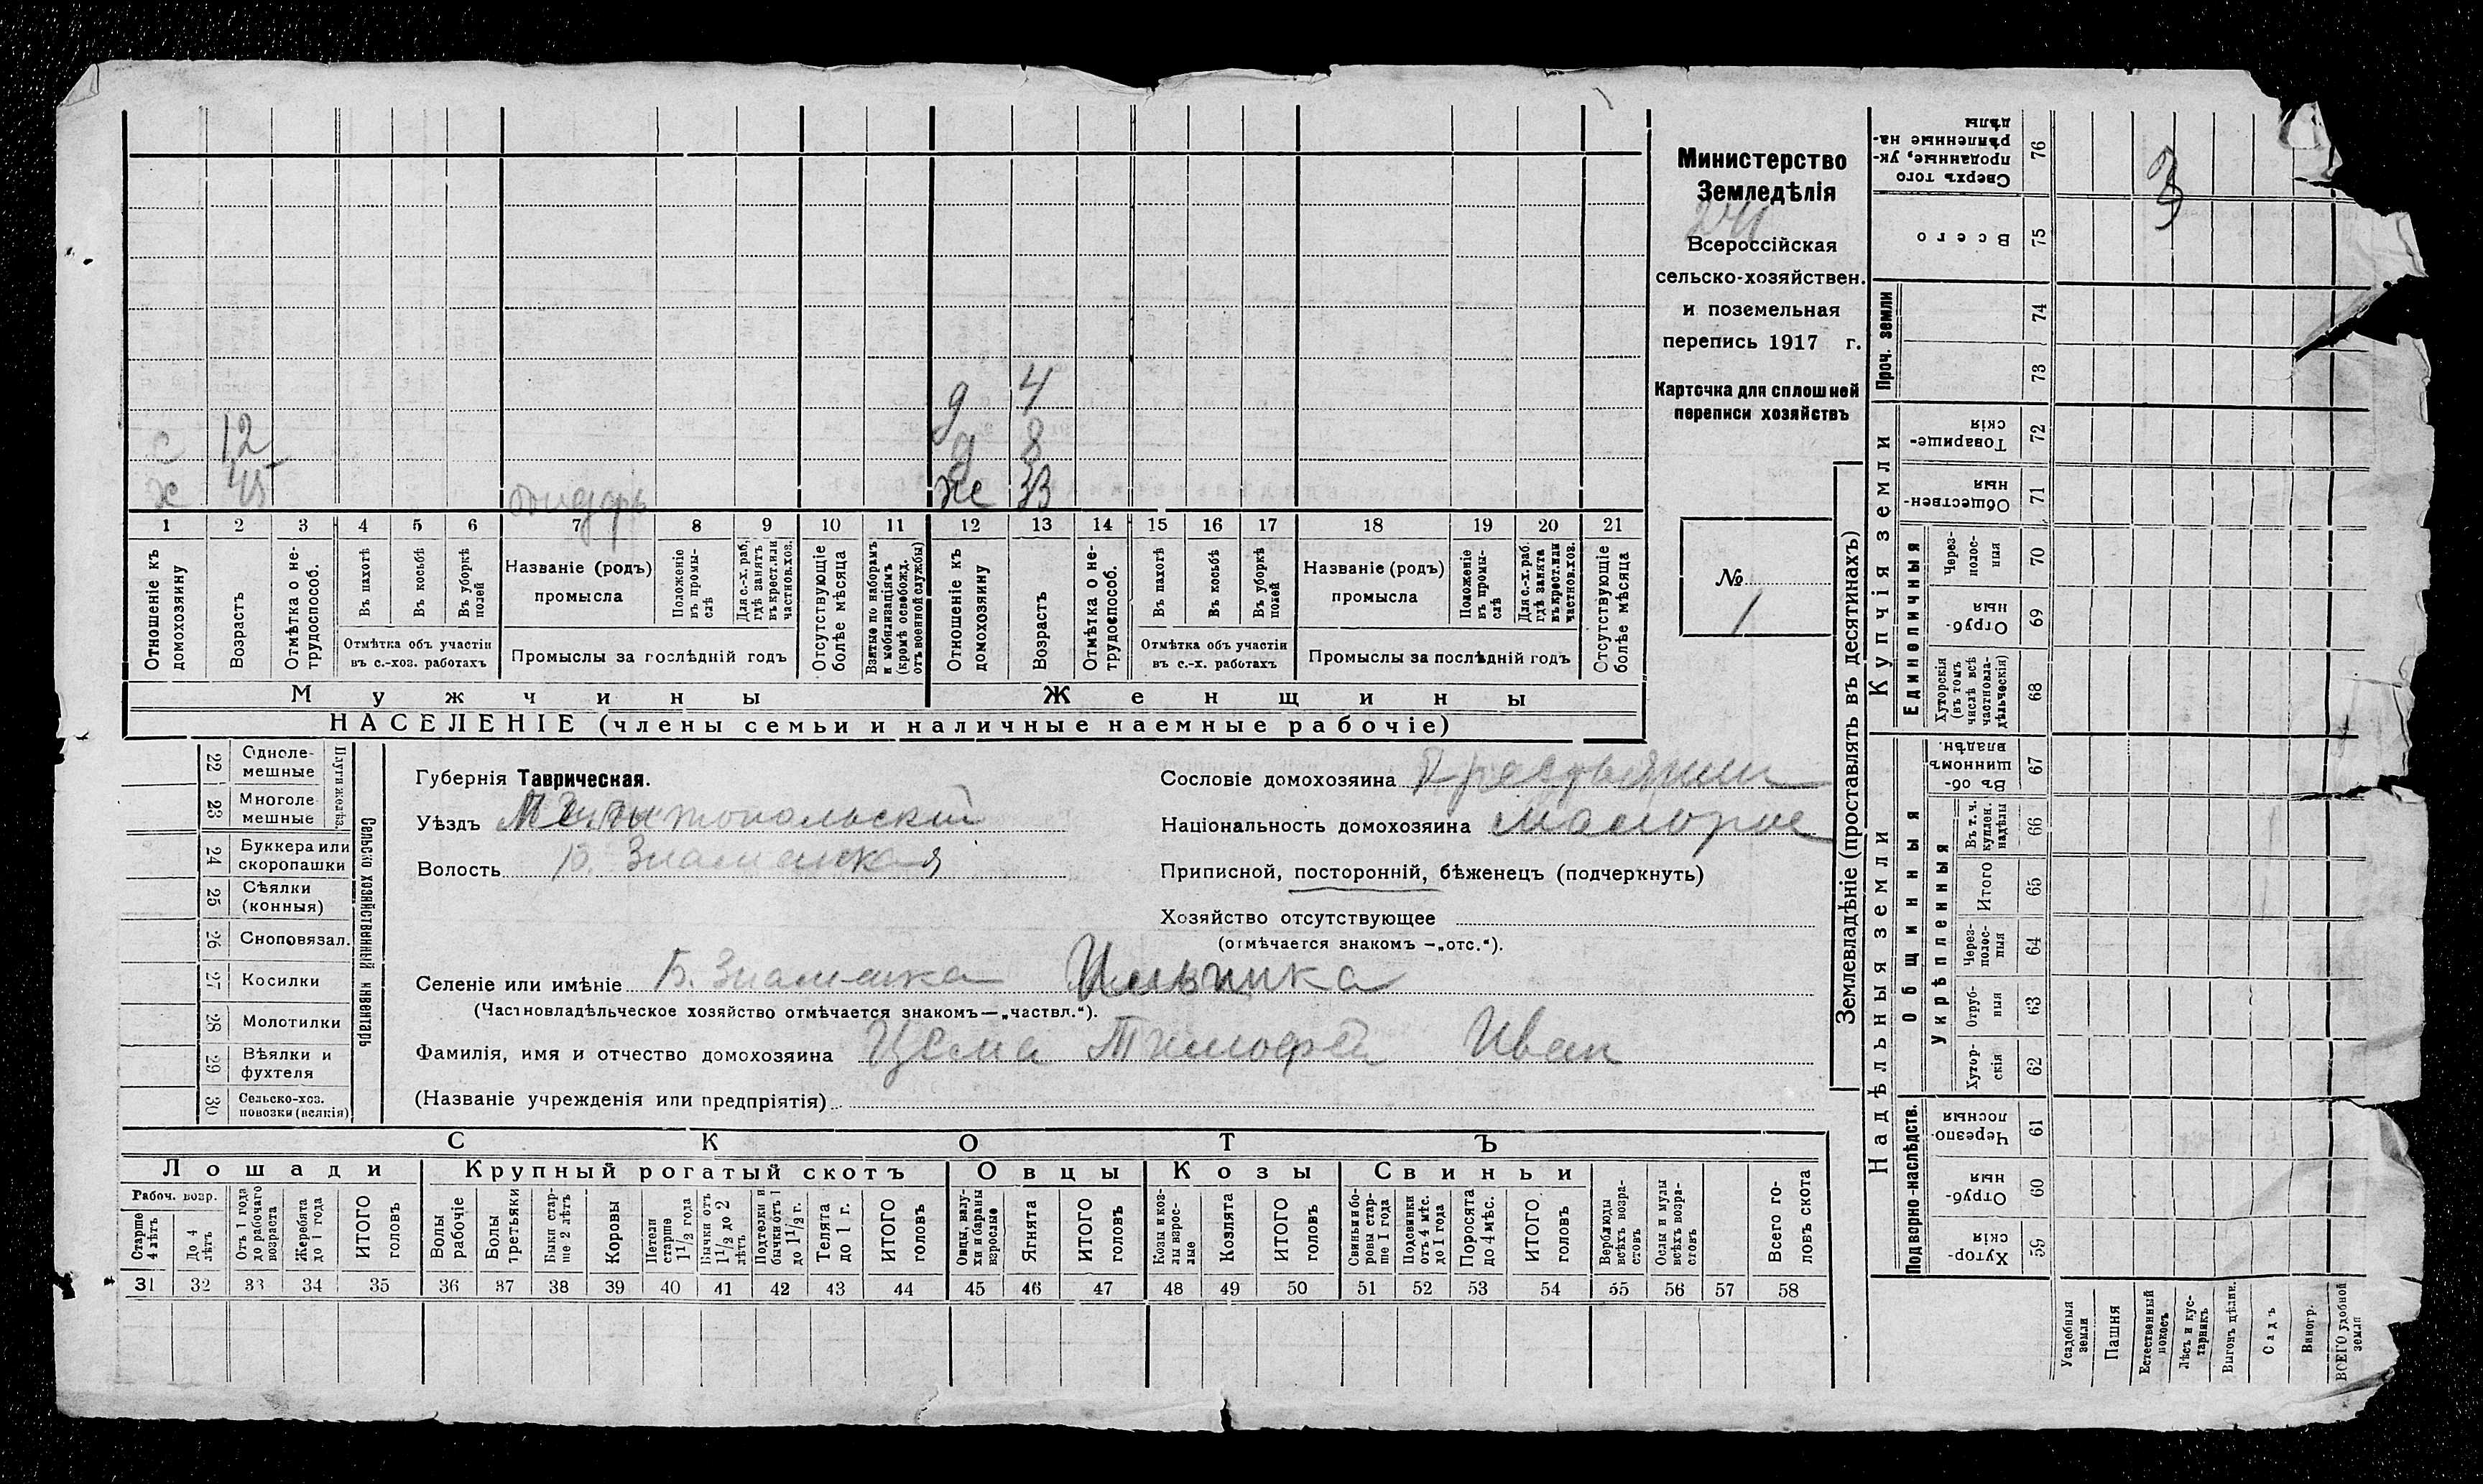 Министерство
Земледѣлія
Всероссійская
сельско-хозяйствен.
и поземельная
перепись 1917 г.
Карточка для сплошной
переписи хозяйствъ
№
1
д 4
с 12 д 8
х 45 же 33
1 2 3 4 5 6 7 8 9 10 11 12 13 14 15 16 17 18 19 20 21
Отношеніе къ домохозяину
Возрастъ
Отмѣтка о не-трудоспособ.
Въ пахотѣ
Въ косьбѣ
Въ уборкѣ полей
Отмѣтка объ участіи въ с.-хоз. работахъ
Названіе (родъ) промысла
Положеніе въ промы-слѣ
Для с.-х. раб. гдѣ занятъ въ крест. или частнов. хоз.
Промыслы за послѣдній годъ
Отсутствующіе болѣе мѣсяца
Взятые по наборамъ и мобилизаціямъ (кромѣ освобожд. отъ военной службы)
Отношеніе къ домохозяину
Возрастъ
Отмѣтка о не-трудоспособ.
Въ пахотѣ
Въ косьбѣ
Въ уборкѣ полей
Отмѣтка объ участіи въ с.-х. работахъ
Названіе (родъ) промысла
Положеніе въ промы-слѣ
Для с.-х. раб. гдѣ занята въ крест. или частнов. хоз.
Промыслы за послѣдній годъ
Отсутствующіе болѣе мѣсяца
Мужчины Женщины
НАСЕЛЕНІЕ (члены семьи и наличные наемные рабочіе)
Сельско хозяйственный инвентарь
Плуги желѣз.
22 Одноле-мешные
23 Многоле мешные
24 Буккера или скоропашки
25 Сѣялки (конныя)
26 Сноповязал.
27 Косилки
28 Молотилки
29 Вѣялки и фухтеля
30 Сельско-хоз. повозки (всякія)
Губернія Таврическая.
Уѣздъ Мелитопольскій
Волость Б. Знаменская
Сословіе домохозяина Крестьянин
Національность домохозяина малорос
Приписной, посторонній, бѣженецъ (подчеркнуть)
Хозяйство отсутствующее
(отмѣчается знакомъ —„отс.“).
Селеніе или имѣніе Б. Знаменка Ильинка
(Частновладѣльческое хозяйство отмѣчается знакомъ—„частвл.“).
Фамилія, имя и отчество домохозяина Цема Тимофей Иван
(Названіе учрежденія или предпріятія)
СКОТЪ
Лошади Крупный рогатый скотъ Овцы Козы Свиньи
Рабоч. возр.
Старше 4 лѣтъ
До 4 лѣтъ
Отъ 1 года до рабочаго возраста
Жеребята до 1 года
ИТОГО головъ
Волы рабочіе
Волы третьяки
Быки стар-ше 2 лѣтъ
Коровы
Нетели старше 1½ года
Бычки отъ 1½ до 2 лѣтъ
Подтелки и бычки отъ 1 до 1½ г.
Телята до 1 г.
ИТОГО головъ
Овцы, валу-хи и бараны взрослые
Ягнята
ИТОГО головъ
Козы и коз-лы взрос-лые
Козлята
ИТОГО головъ
Свиньи и бо-ровы стар-ше 1 года
Подсвинки отъ 4 мѣс. до 1 года
Поросята до 4 мѣс.
ИТОГО головъ
Верблюды всѣхъ возра-стовъ
Ослы и мулы всѣхъ возра-стовъ
Всего го-ловъ скота
31 32 33 34 35 36 37 38 39 40 41 42 43 44 45 46 47 48 49 50 51 52 53 54 55 56 57 58
Землевладѣніе (проставлять въ десятинахъ)
Купчія земли
Надѣльныя земли
Проч. земли
Единоличныя
Общинныя
Укрѣпленныя
Подворно-наслѣдств.
76 Сверхъ того проданные, ук-рѣпленные на-дѣлы
75 Всего
74
73
72 Товарище-скія
71 Обществен-ныя
70 Через-полос-ныя
69 Отруб-ныя
68 Хуторскія (въ томъ числѣ всѣ частновла-дѣльческія)
67 Въ об-щинномъ владѣн.
66 Въ т. ч. куплен. надѣлы
65 Итого
64 Через-полос-ныя
63 Отруб-ныя
62 Хутор-скія
61 Черезпо-лосныя
60 Отруб-ныя
59 Хутор-скія
Усадебныя земли
Пашня
Естественный покосъ
Лѣсъ и кус-тарникъ
Выгонъ цѣлин.
Садъ
Виногр.
ВСЕГО удобной земли